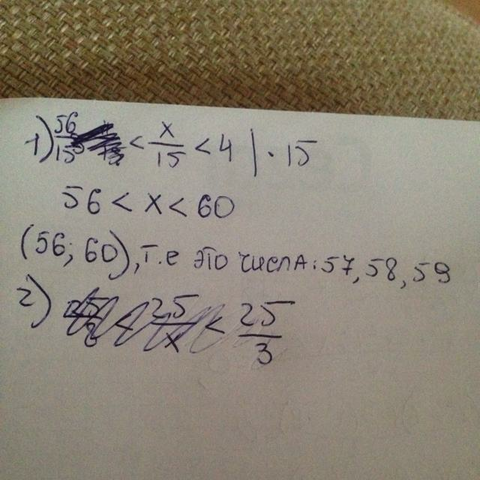 1) 56/15 < x/15 < 4 | · 15
56 < x < 60
(56; 60), т.е это числа: 57, 58, 59
2) < 25/3